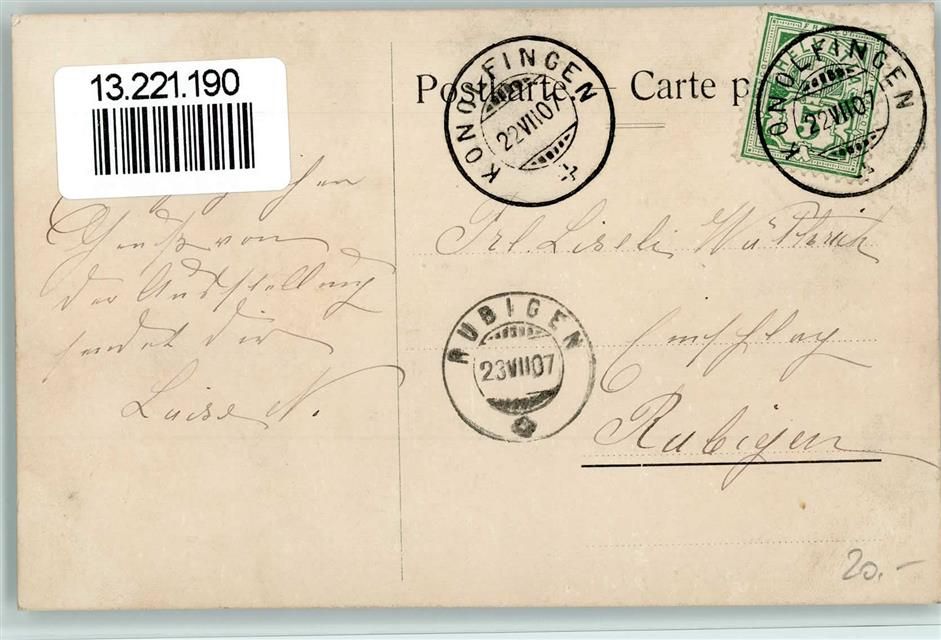 13.221.190
Postkarte. — Carte p
KONOLFINGEN
22 VII 07
KONOLFINGEN
22 VII 07
HELVETIA
FRANCO
5
Gruß von
der Ausstellung
sendet dir
Luise N.
Frl. Liseli Wüthrich
RUBIGEN
23 VII 07
Rubigen
20.-